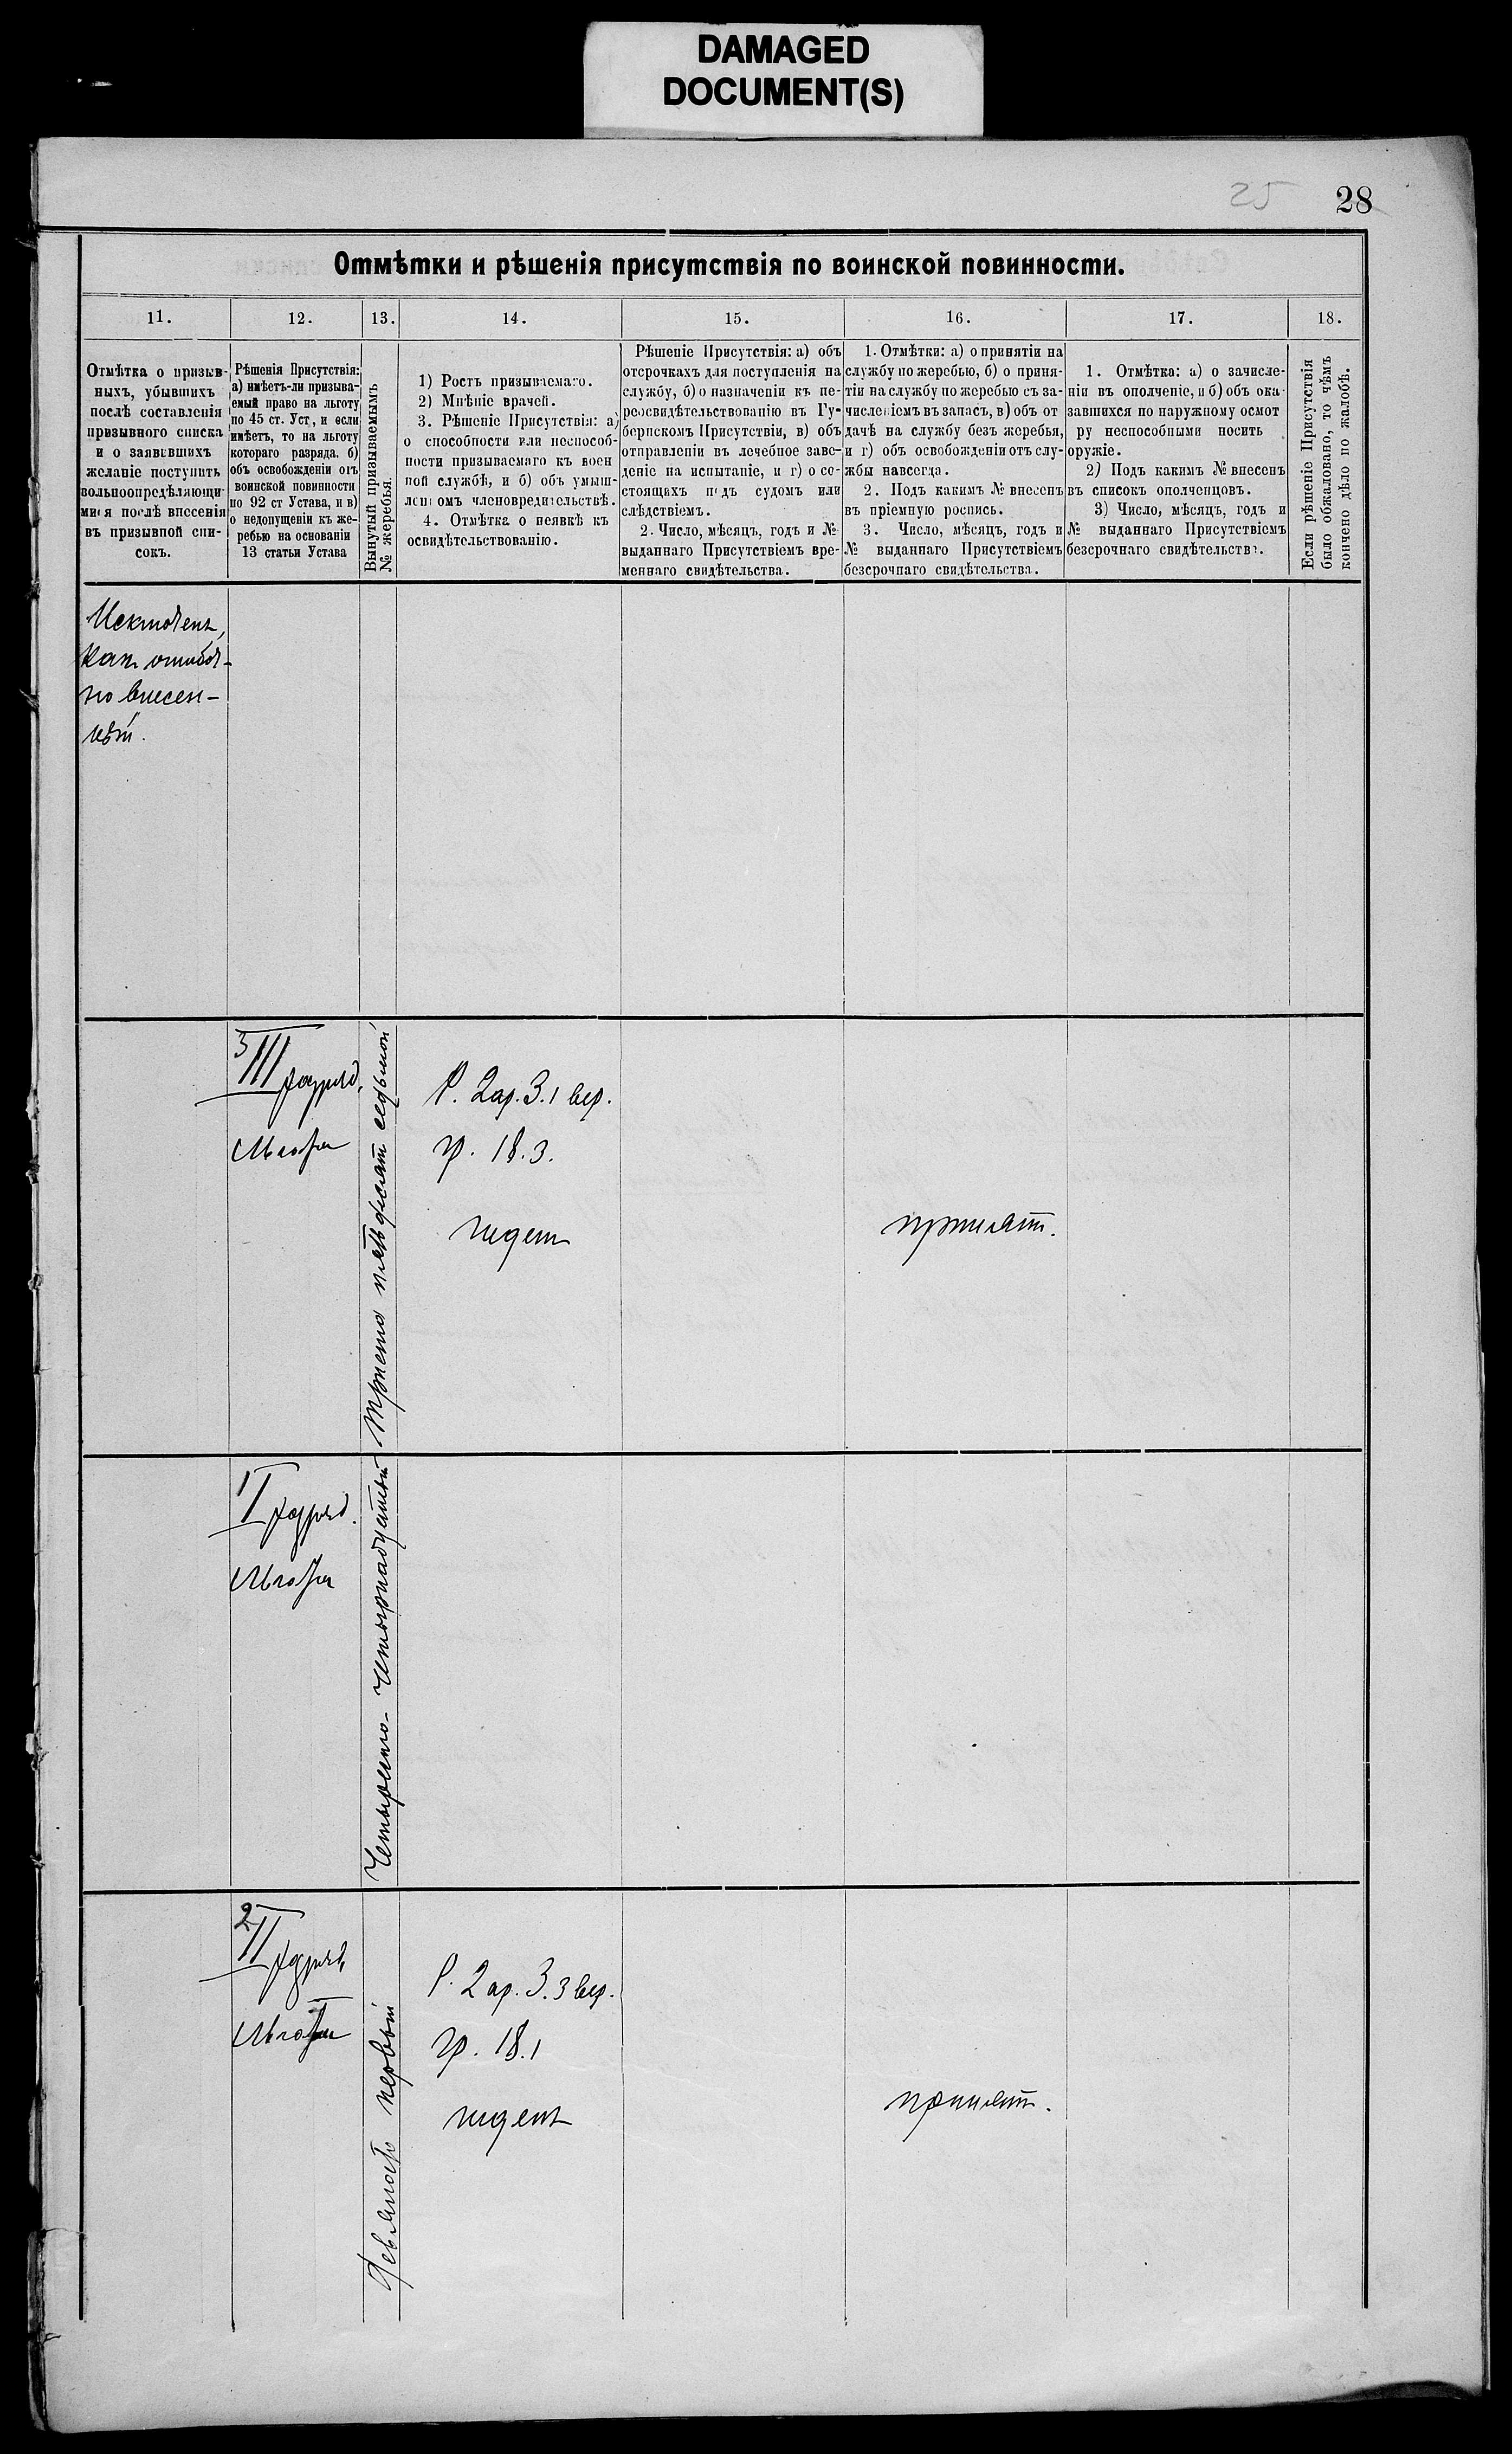 DAMAGED
DOCUMENT(S)
25 28
Отмѣтки и рѣшенія присутствія по воинской повинности.
11. 12. 13. 14. 15. 16. 17. 18.
Отмѣтка о призыв-
ныхъ, убывшихъ
послѣ составленія
призывного списка
и о заявившихъ
желаніе поступить
вольноопредѣляющи-
мися послѣ внесенія
въ призывной спи-
сокъ.
Рѣшенія Присутствія:
а) имѣетъ-ли призыва-
емый право на льготу
по 45 ст. Уст, и если
имѣетъ, то на льготу
котораго разряда. б)
объ освобожденіи отъ
воинской повинности
по 92 ст Устава, и в)
о недопущеніи къ же-
ребью на основаніи
13 статьи Устава
Вынутый призываемымъ
№ жеребья.
1) Ростъ призываемаго.
2) Мнѣніе врачей.
3. Рѣшеніе Присутствія: а)
о способности или неспособ-
ности призываемаго къ воен
ной службѣ, и б) объ умыш-
ленномъ членовредительствѣ.
4. Отмѣтка о неявкѣ къ
освидѣтельствованію.
Рѣшеніе Присутствія: а) объ
отсрочкахъ для поступленія на
службу, б) о назначеніи къ пе-
реосвидѣтельствованію въ Гу-
бернскомъ Присутствіи, в) объ
отправленіи въ лечебное заве-
деніе на испытаніе, и г) о со-
стоящихъ подъ судомъ или
слѣдствіемъ.
2. Число, мѣсяцъ, годъ и №
выданнаго Присутствіемъ вре-
меннаго свидѣтельства.
1. Отмѣтки: а) о принятіи на
службу по жеребью, б) о приня-
тіи на службу по жеребью съ за-
численіемъ въ запасъ, в) объ от
дачѣ на службу безъ жеребья,
и г) объ освобожденіи отъ слу-
жбы навсегда.
2. Подъ какимъ № внесенъ
въ пріемную роспись.
3. Число, мѣсяцъ, годъ и
№ выданнаго Присутствіемъ
безсрочнаго свидѣтельства.
1. Отмѣтка: а) о зачисле-
ніи въ ополченіе, и б) объ ока-
завшихся по наружному осмот
ру неспособными носить
оружіе.
2) Подъ какимъ № внесенъ
въ списокъ ополченцовъ.
3) Число, мѣсяцъ, годъ и
№ выданнаго Присутствіемъ
безсрочнаго свидѣтельства.
Если рѣшеніе Присутствія
было обжаловано, то чѣмъ
кончено дѣло по жалобѣ.
Исключенъ,
какъ ошибоч-
но внесен-
ный.
3 III разряд.
Льгота
Триста пятьдесят седьмой
Р. 2 ар. 3.1 вер.
гр. 18.3.
годенъ
принятъ.
1 I разряд.
Льгота
Четыреста-четырнадцатый
2 II разряд.
Льгота
Девяносто первый
Р. 2 ар. 3.3 вер.
гр. 18.1
годенъ
принятъ.